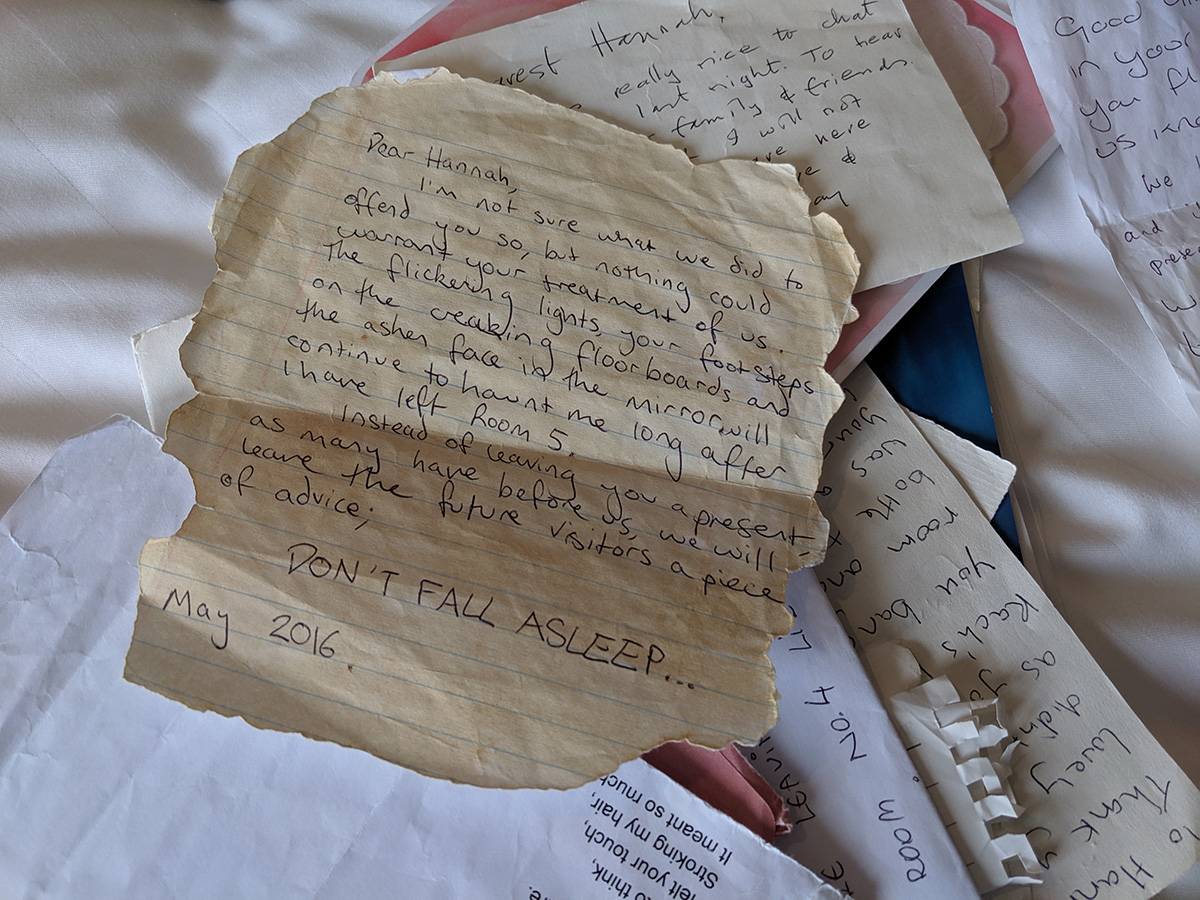 Dear Hannah,
I'm not sure what we did to
offend you so, but nothing could
warrant your treatment of us.
The flickering lights, your footsteps
on the creaking floorboards and
the ashen face in the mirror will
continue to haunt me long after
I have left Room 5.
Instead of leaving you a present
as many have before us, we will
leave the future visitors a piece
of advice;
DON'T FALL ASLEEP...
May 2016.
Hannah,
really nice to chat
last night. To hear
family & friends.
I will not
here
&
Good
in your
you
us
We
and
To
Thank
Lovey
didn't
as
Rach's
you
room
bottle
was
you
ROOM NO. 4
felt your touch,
Stroking my hair,
It meant so much
to think